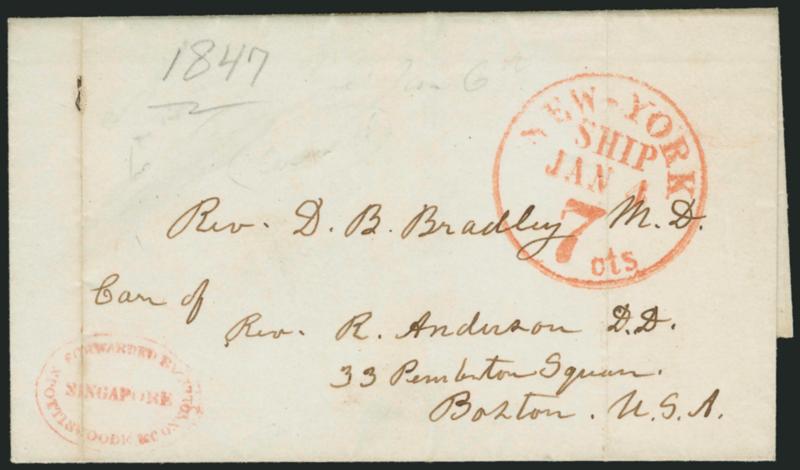 1847
NEW-YORK
SHIP
JAN 4
7
cts
Rev. D. B. Bradley M.D.
Care of
Rev. R. Anderson D.D.
33 Pemberton Square.
Boston. U.S.A.
FORWARDED BY
SINGAPORE